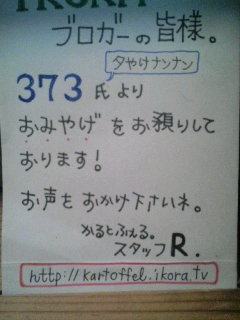 IKORA
ブロガーの皆様。
夕やけナンナン
373氏より
おみやげをお預りして
おります!
お声をおかけ下さいネ。
かるとふぇる。
スタッフR.
http://kartoffel.ikora.tv